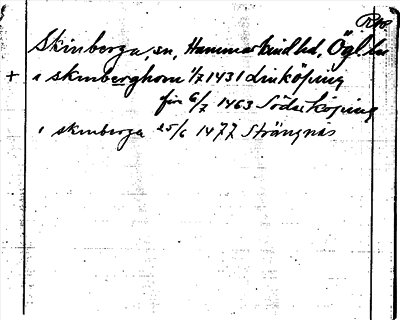 RAp
Skinberga, sn, Hammarkind hd, Ögl län
+ i skinberghom 1/7 1431 Linköping
för 6/7 1463 Söderköping
i skinberga 25/6 1477 Strängnäs